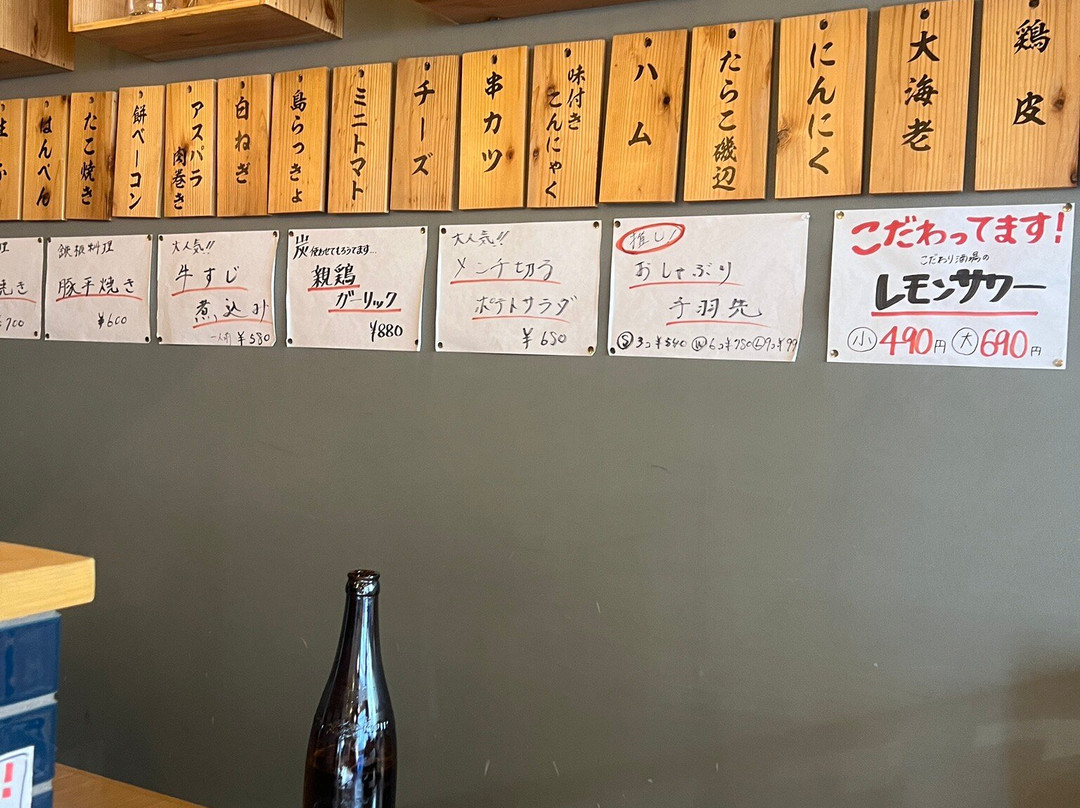 鶏皮
大海老
にんにく
たらこ磯辺
ハム
味付き
こんにゃく
串カツ
チーズ
ミニトマト
島らっきょ
白ねぎ
アスパラ
肉巻き
餅ベーコン
たこ焼き
はんぺん
こだわってます!
こだわり酒場の
レモンサワー
小 490円 大 690円
推し!
おしゃぶり
手羽先
S 3コ¥540 M 6コ¥780 L 9コ¥99
大人気!!
メンチ切う
ポテトサラダ
¥650
炭 使わせてもろうてます...
親鶏
ガーリック
¥880
大人気!!
牛すじ
煮込み
一人前 ¥580
鉄板料理
豚平焼き
¥600
理
焼き
¥700